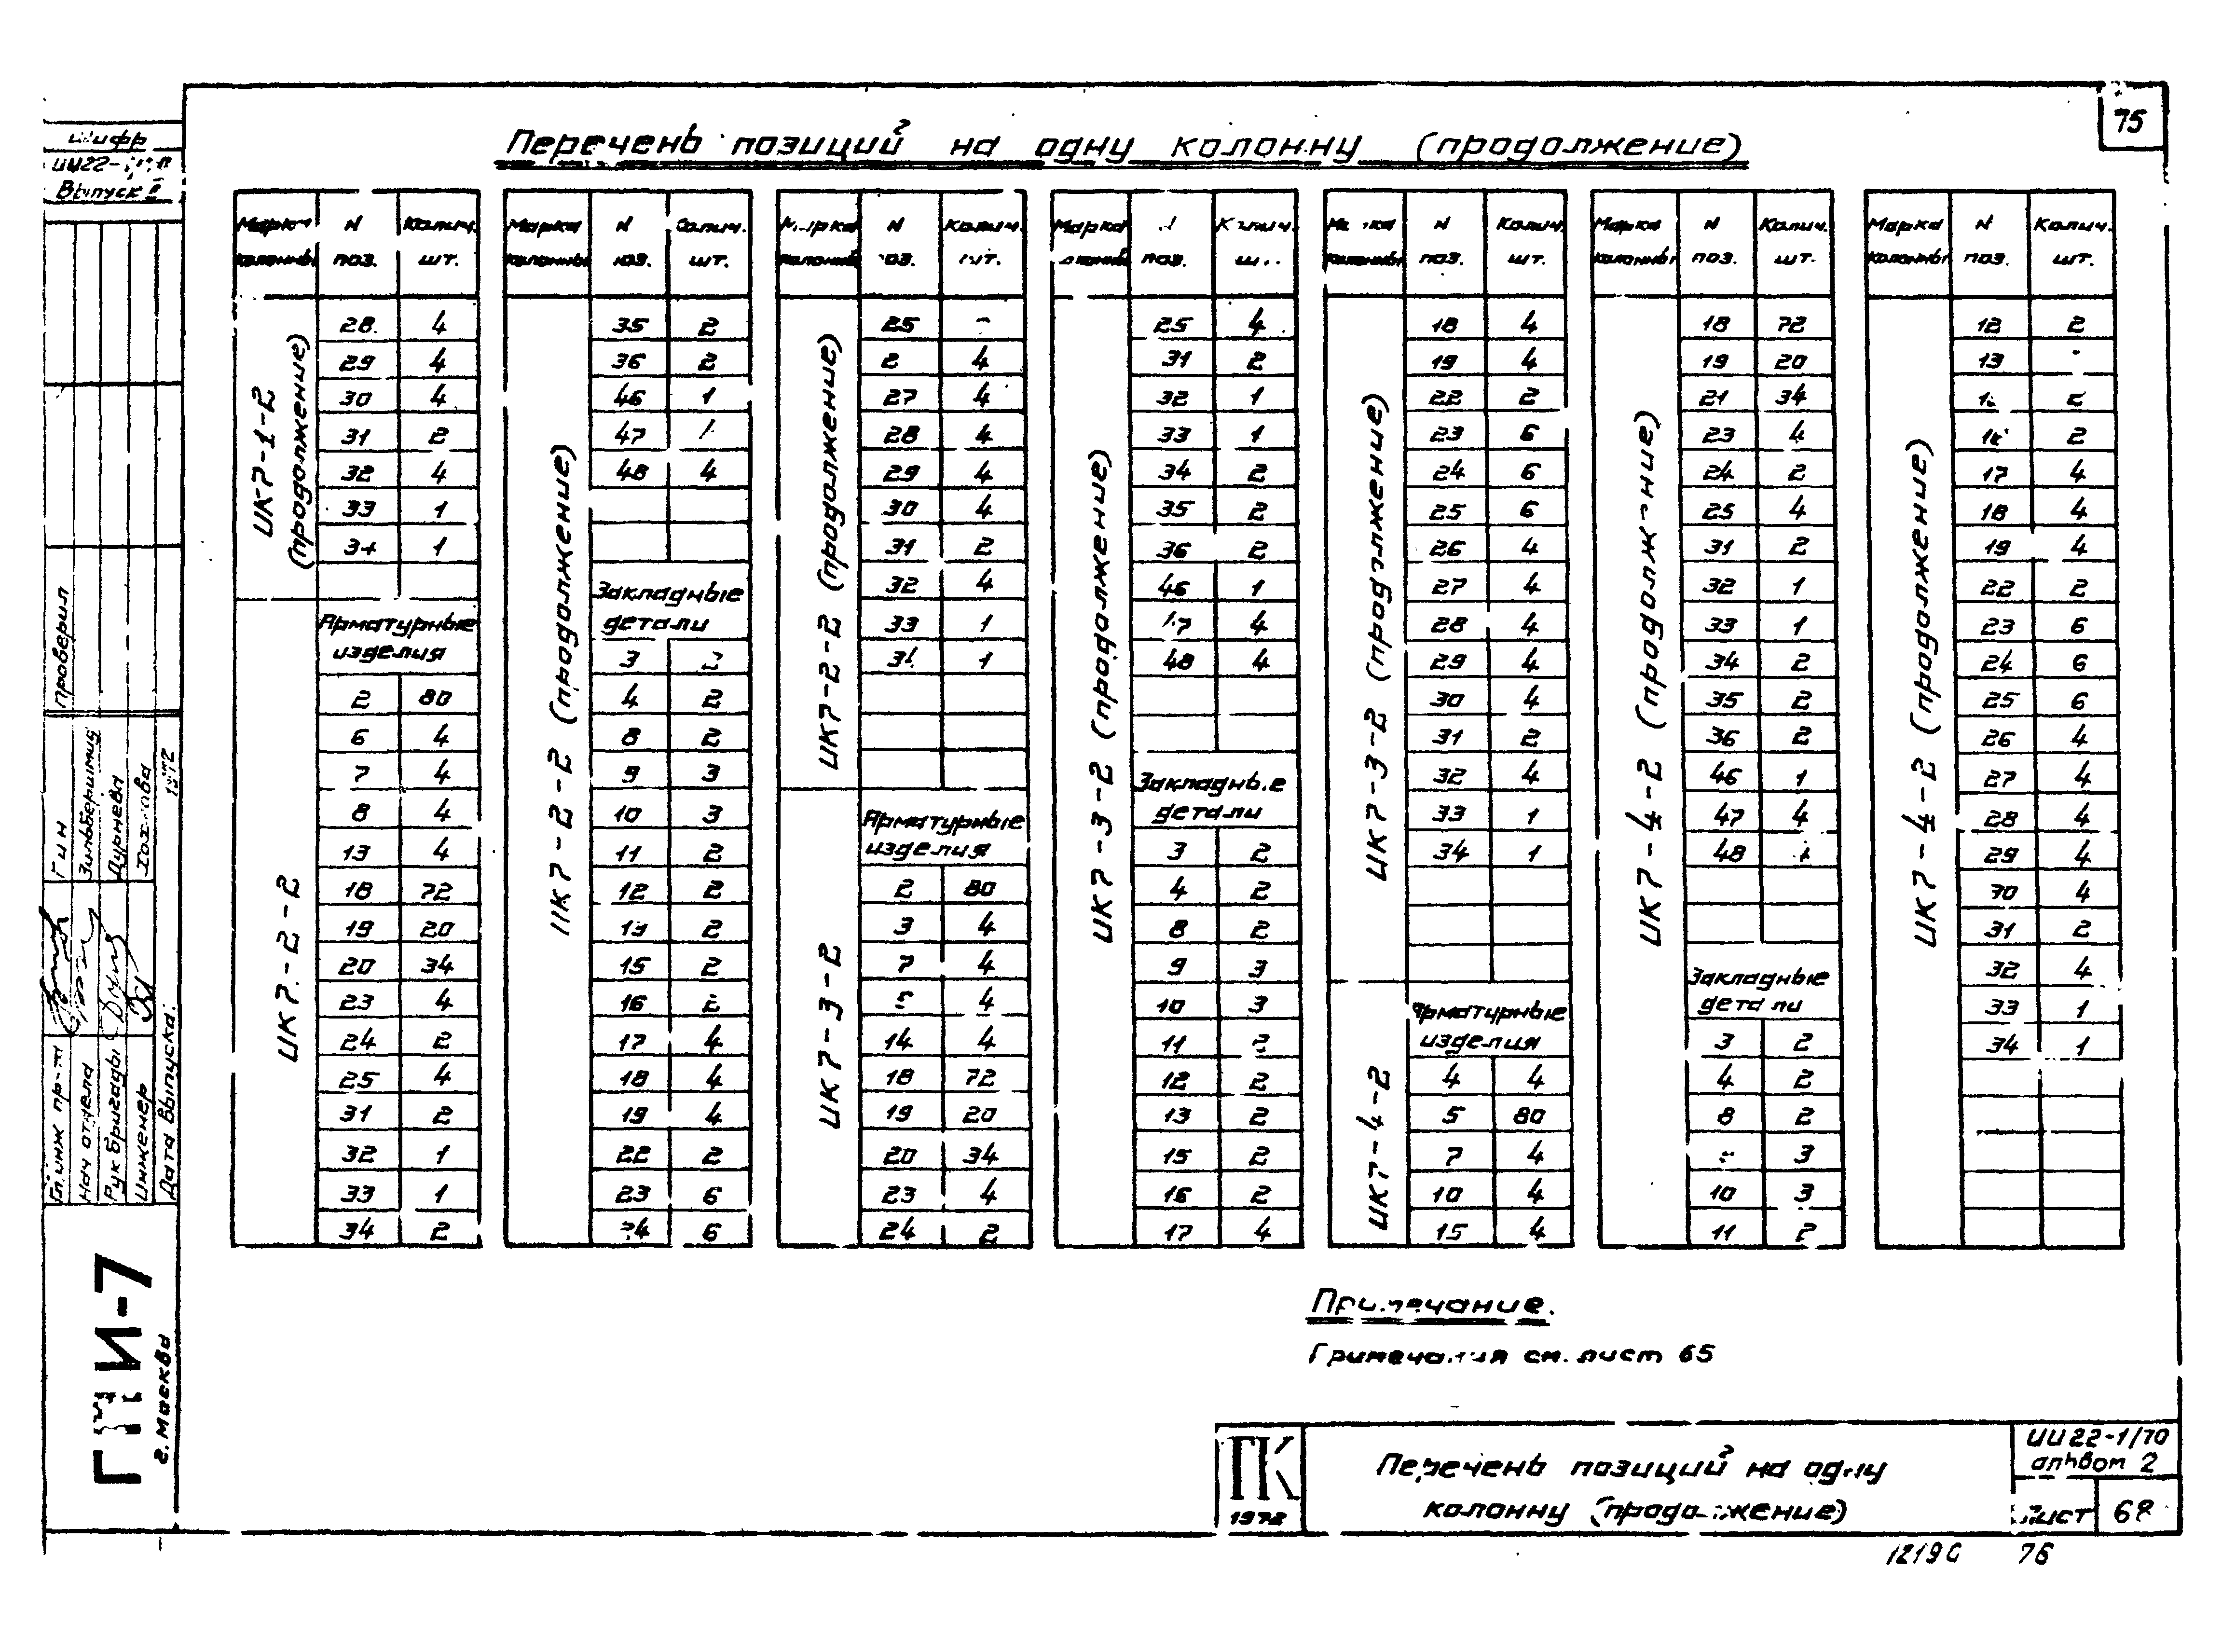 75
Перечень позиций на одну колонну (продолжение)
Шифр
Выпуск II
проверил
Гин
Зильбершмид
Дурнева
1972
Гл. инж пр-та
Нач отдела
Рук бригады
Инженер
Дата выпуска:
ГПИ-7
г. Москва
Марка колонны N поз. Колич. шт.
ИК7-1-2 (продолжение)
28 4
29 4
30 4
31 2
32 4
33 1
34 1
ИК7-2-2
Арматурные
изделия
2 80
6 4
7 4
8 4
13 4
18 72
19 20
20 34
23 4
24 2
25 4
31 2
32 1
33 1
34 2
Марка колонны N поз. Колич. шт.
ИК7-2-2 (продолжение)
35 2
36 2
46 1
47
48 4
Закладные
детали
3 2
4 2
8 2
9 3
10 3
11 2
12 2
13 2
15 2
16 2
17 4
18 4
19 4
22 2
23 6
24 6
Марка колонны N поз. Колич. шт.
ИК7-2-2 (продолжение)
25
4
27 4
28 4
29 4
30 4
31 2
32 4
33 1
34 1
ИК7-3-2
Арматурные
изделия
2 80
3 4
7 4
4
14 4
18 72
19 20
20 34
23 4
24 2
Марка колонны поз. Колич. шт.
ИК7-3-2 (продолжение)
25 4
31 2
32 1
33 1
34 2
35 2
36 2
46 1
47 4
48 4
Закладные
детали
3 2
4 2
8 2
9 3
10 3
11 2
12 2
13 2
15 2
16 2
17 4
Марка колонны N поз. Колич. шт.
ИК7-3-2 (продолжение)
18 4
19 4
22 2
23 6
24 6
25 6
26 4
27 4
28 4
29 4
30 4
31 2
32 4
33 1
34 1
ИК7-4-2
Арматурные
изделия
4 4
5 80
7 4
10 4
15 4
Марка колонны N поз. Колич. шт.
ИК7-4-2 (продолжение)
18 72
19 20
21 34
23 4
24 2
25 4
31 2
32 1
33 1
34 2
35 2
36 2
46 1
47 4
48
Закладные
детали
3 2
4 2
8 2
3
10 3
11 2
Марка колонны N поз. Колич. шт.
ИК7-4-2 (продолжение)
12 2
13
2
17 4
18 4
19 4
22 2
23 6
24 6
25 6
26 4
27 4
28 4
29 4
30 4
31 2
32 4
33 1
34 1
Примечание.
Примечания см. лист 65
ТК
1972
Перечень позиций на одну
колонну (продолжение)
ИИ22-1/70
альбом 2
Лист 68
12190 76